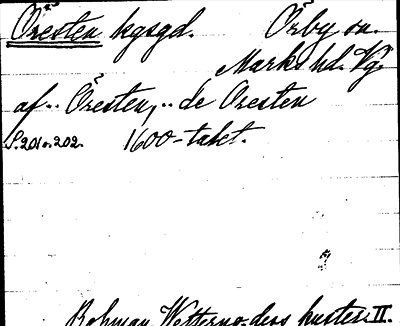 Öresten kgsgd. Örby sn.
Marks hd. Vg.
af "Öresten," "de Oresten
S. 201 o. 202. 1600-talet.
Bohman, Wettern o. dess kuster. II.